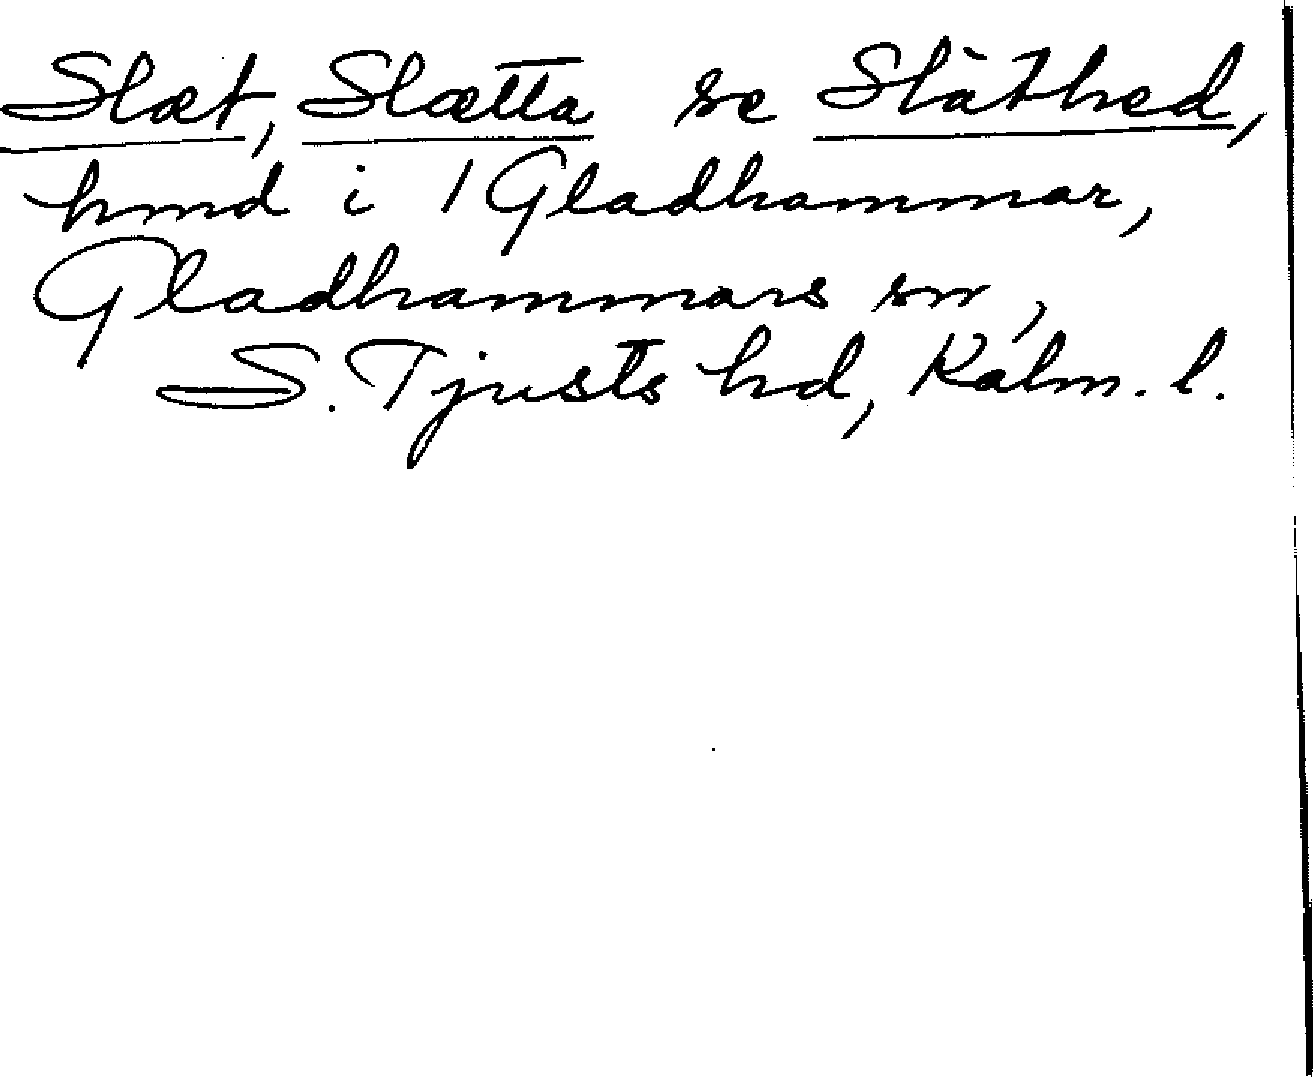 Slæt, Slætta se Slåthed,
hmd i / Gladhammar,
Gladhammars sn,
S. Tjusts hd, Kalm. l.